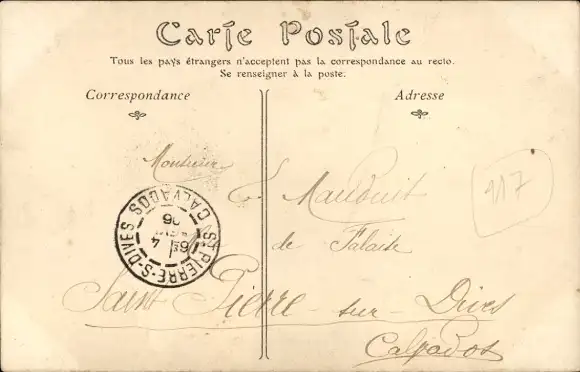 Carte Postale
Tous les pays étrangers n'acceptent pas la correspondance au recto.
Se renseigner à la poste.
Correspondance
Adresse
Monsieur
E Mauduit
117
de Falaise
Saint Pierre sur Dives
Calvados
ST PIERRE-S-DIVES
CALVADOS
06